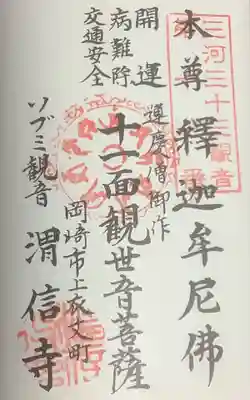 本尊釋迦牟尼佛
三河三十三観音
運慶僧御作
十一面観世音菩薩
開運
病難除
交通安全
岡崎市上衣文町
ソブミ観音
渭信寺